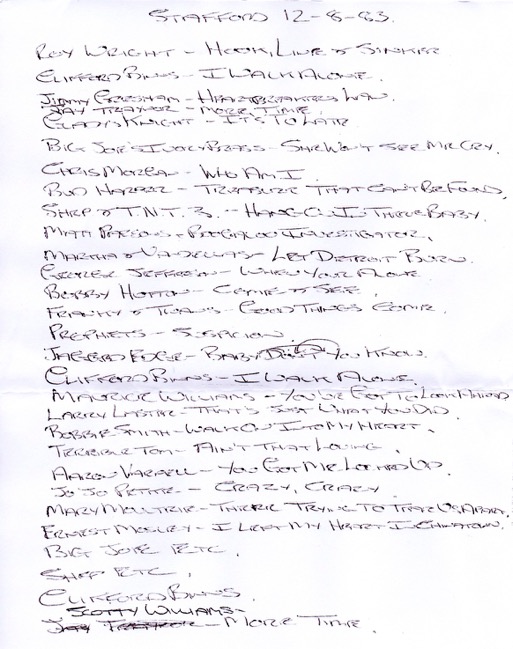 STAFFORD 12-8-83.
ROY WRIGHT - HOOK, LINE & SINKER
CLIFFORD BINNS - I WALK ALONE.
JIMMY GRESHAM - HEARTBREAKERS LAW.
JAY TRAYNOR - MORE TIME.
GLADYS KNIGHT - IT'S TO LATE
BIG JOE'S IVORY BRASS - SHE WON'T SEE ME CRY.
CHRIS MORGAN - WHO AM I
BUD HARPER - TREASURE THAT CAN'T BE FOUND,
SHEP & T.N.T. 3. - HANG ON IN THERE BABY.
MATT PARSONS - BOOGALOO INVESTIGATOR,
MARTHA & VANDELLAS - LET DETROIT BURN.
GEORGE JEFFERSON - WHEN YOUR ALONE
BOBBY HUTTON - COME & SEE.
FRANKY & TWANS - GOOD THINGS COME.
PROPHETS - SUSPICION
JAGGED EDGE - BABY YOU KNOW.
CLIFFORD BINNS - I WALK ALONE.
MAURICE WILLIAMS - YOU'VE GOT TO LOOK AHEAD
LARRY LASTER - THAT'S JUST WHAT YOU DID.
BOBBIE SMITH - WALK ON INTO MY HEART,
TERRIBLE TOM - AIN'T THAT LOVING,
AARON VARNELL - YOU GOT ME LOCKED UP.
JO JO PETITE - CRAZY, CRAZY
MARY MOULTRIE - THEY'RE TRYING TO TEAR US APART,
ERNEST MOSLEY - I LEFT MY HEART IN CHINATOWN.
BIG JOE ETC,
SHEP ETC,
CLIFFORD BINNS
SCOTTY WILLIAMS -
JAY TRAYNOR - MORE TIME.